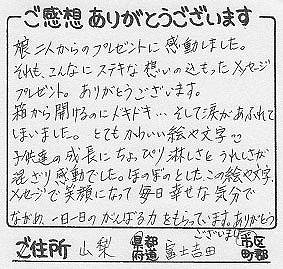 ご感想 ありがとうございます
娘二人からのプレゼントに感動しました。
それも、こんなにステキな想いの込もったメッセージ
プレゼント。ありがとうございます。
箱から開けるのにドキドキ…そして涙があふれて
しまいました。とてもかわいい絵や文字
子供達の成長にちょっぴり淋しさとうれしさが
混ざり感動でした。ほのぼのとした、この絵や文字、
メッセージで笑顔になって毎日幸せな気分で
ながめ、一日一日のがんばる力をもらっています。ありがとう
ございました
ご住所 山梨 都道府県 富士吉田 市区町村郡